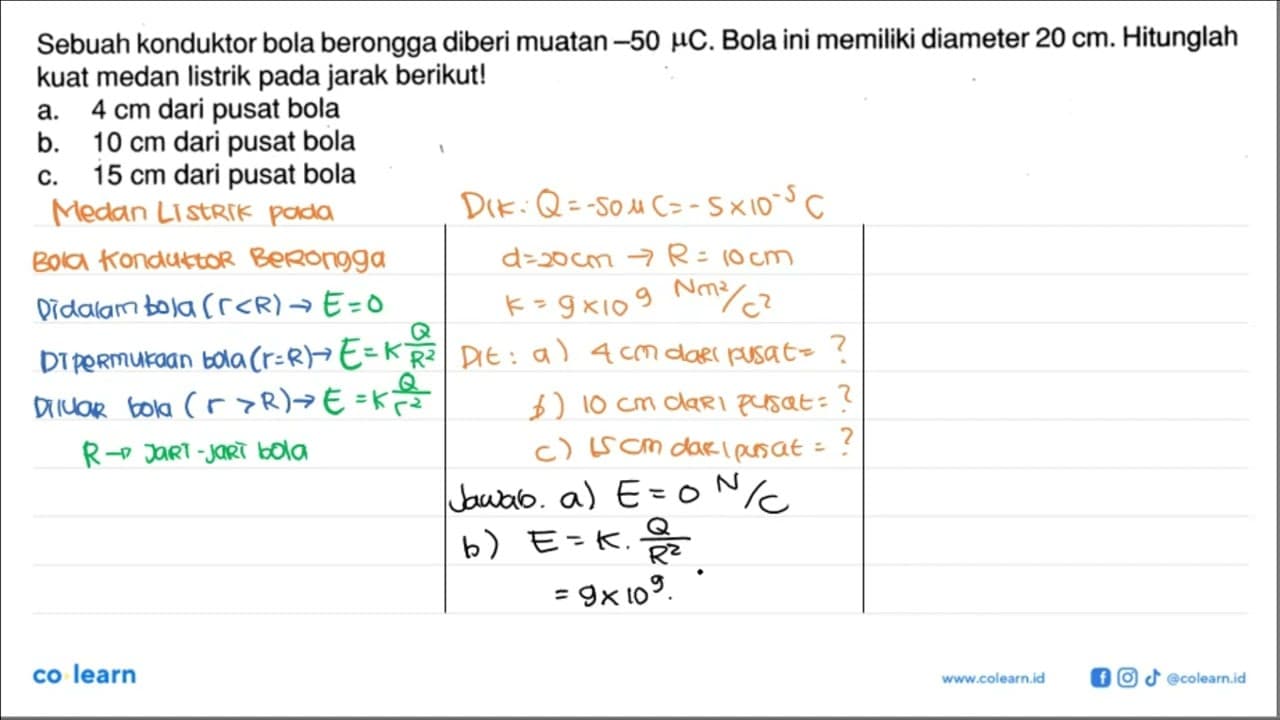 Sebuah konduktor bola berongga diberi muatan –50 μC. Bola ini memiliki diameter 20 cm. Hitunglah
kuat medan listrik pada jarak berikut!
a. 4 cm dari pusat bola
b. 10 cm dari pusat bola
c. 15 cm dari pusat bola
Medan Listrik pada
Bola Konduktor Berongga
Didalam bola (r<R) → E=0
Di permukaan bola (r=R) → E=K Q/R²
Diluar bola (r>R) → E=K Q/r²
R → Jari-Jari bola
Dik: Q = -50 μC = -5×10⁻⁵ C
d=20cm → R= 10cm
K = 9×10⁹ Nm²/C²
Dit: a) 4 cm dari pusat= ?
b) 10 cm dari pusat= ?
c) 15 cm dari pusat = ?
Jawab. a) E = 0 N/C
b) E = K. Q/R²
= 9×10⁹.
co learn
www.colearn.id
@colearn.id